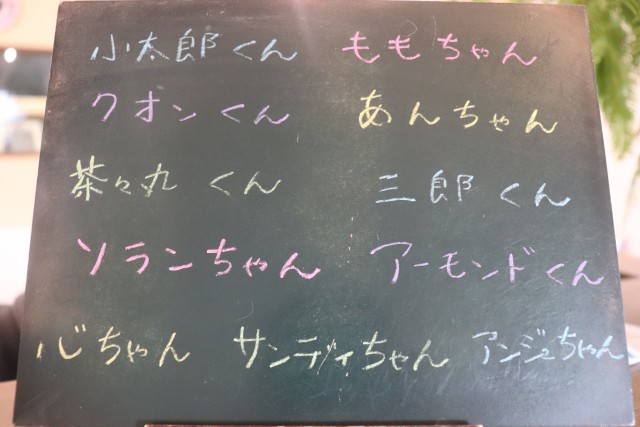 小太郎くん ももちゃん
クオンくん あんちゃん
茶々丸くん 三郎くん
ソランちゃん アーモンドくん
心ちゃん サンディちゃん アンジュちゃん